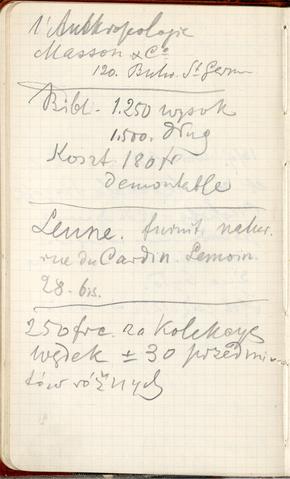 l'Anthropologie
Masson & Co
120. Bulv. St Germ
Bibl. 1.250 wysok
1.500. dług
Koszt 180 fr
demontable
Lenne. furnit. natur.
rue du Cardin. Lemoin.
28. bis.
250 frc. za Kolekcyę
wędek ± 30 przedmio-
tów różnych